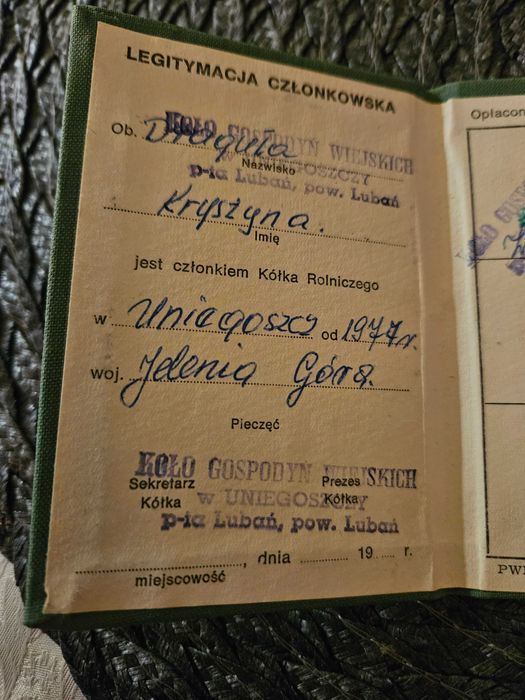 LEGITYMACJA CZŁONKOWSKA
KOŁO GOSPODYŃ WIEJSKICH
Ob. Draguła
w UNIEGOSZCZY
Nazwisko
p-ta Lubań, pow. Lubań
Krystyna.
Imię
jest członkiem Kółka Rolniczego
w Uniegoszczy od 1977 r.
woj. Jelenia Góra.
Pieczęć
KOŁO GOSPODYŃ WIEJSKICH
Sekretarz Prezes
w UNIEGOSZCZY
Kółka Kółka
p-ta Lubań, pow. Lubań
, dnia 19 r.
miejscowość
Opłacon
KOŁO GOSP
PW